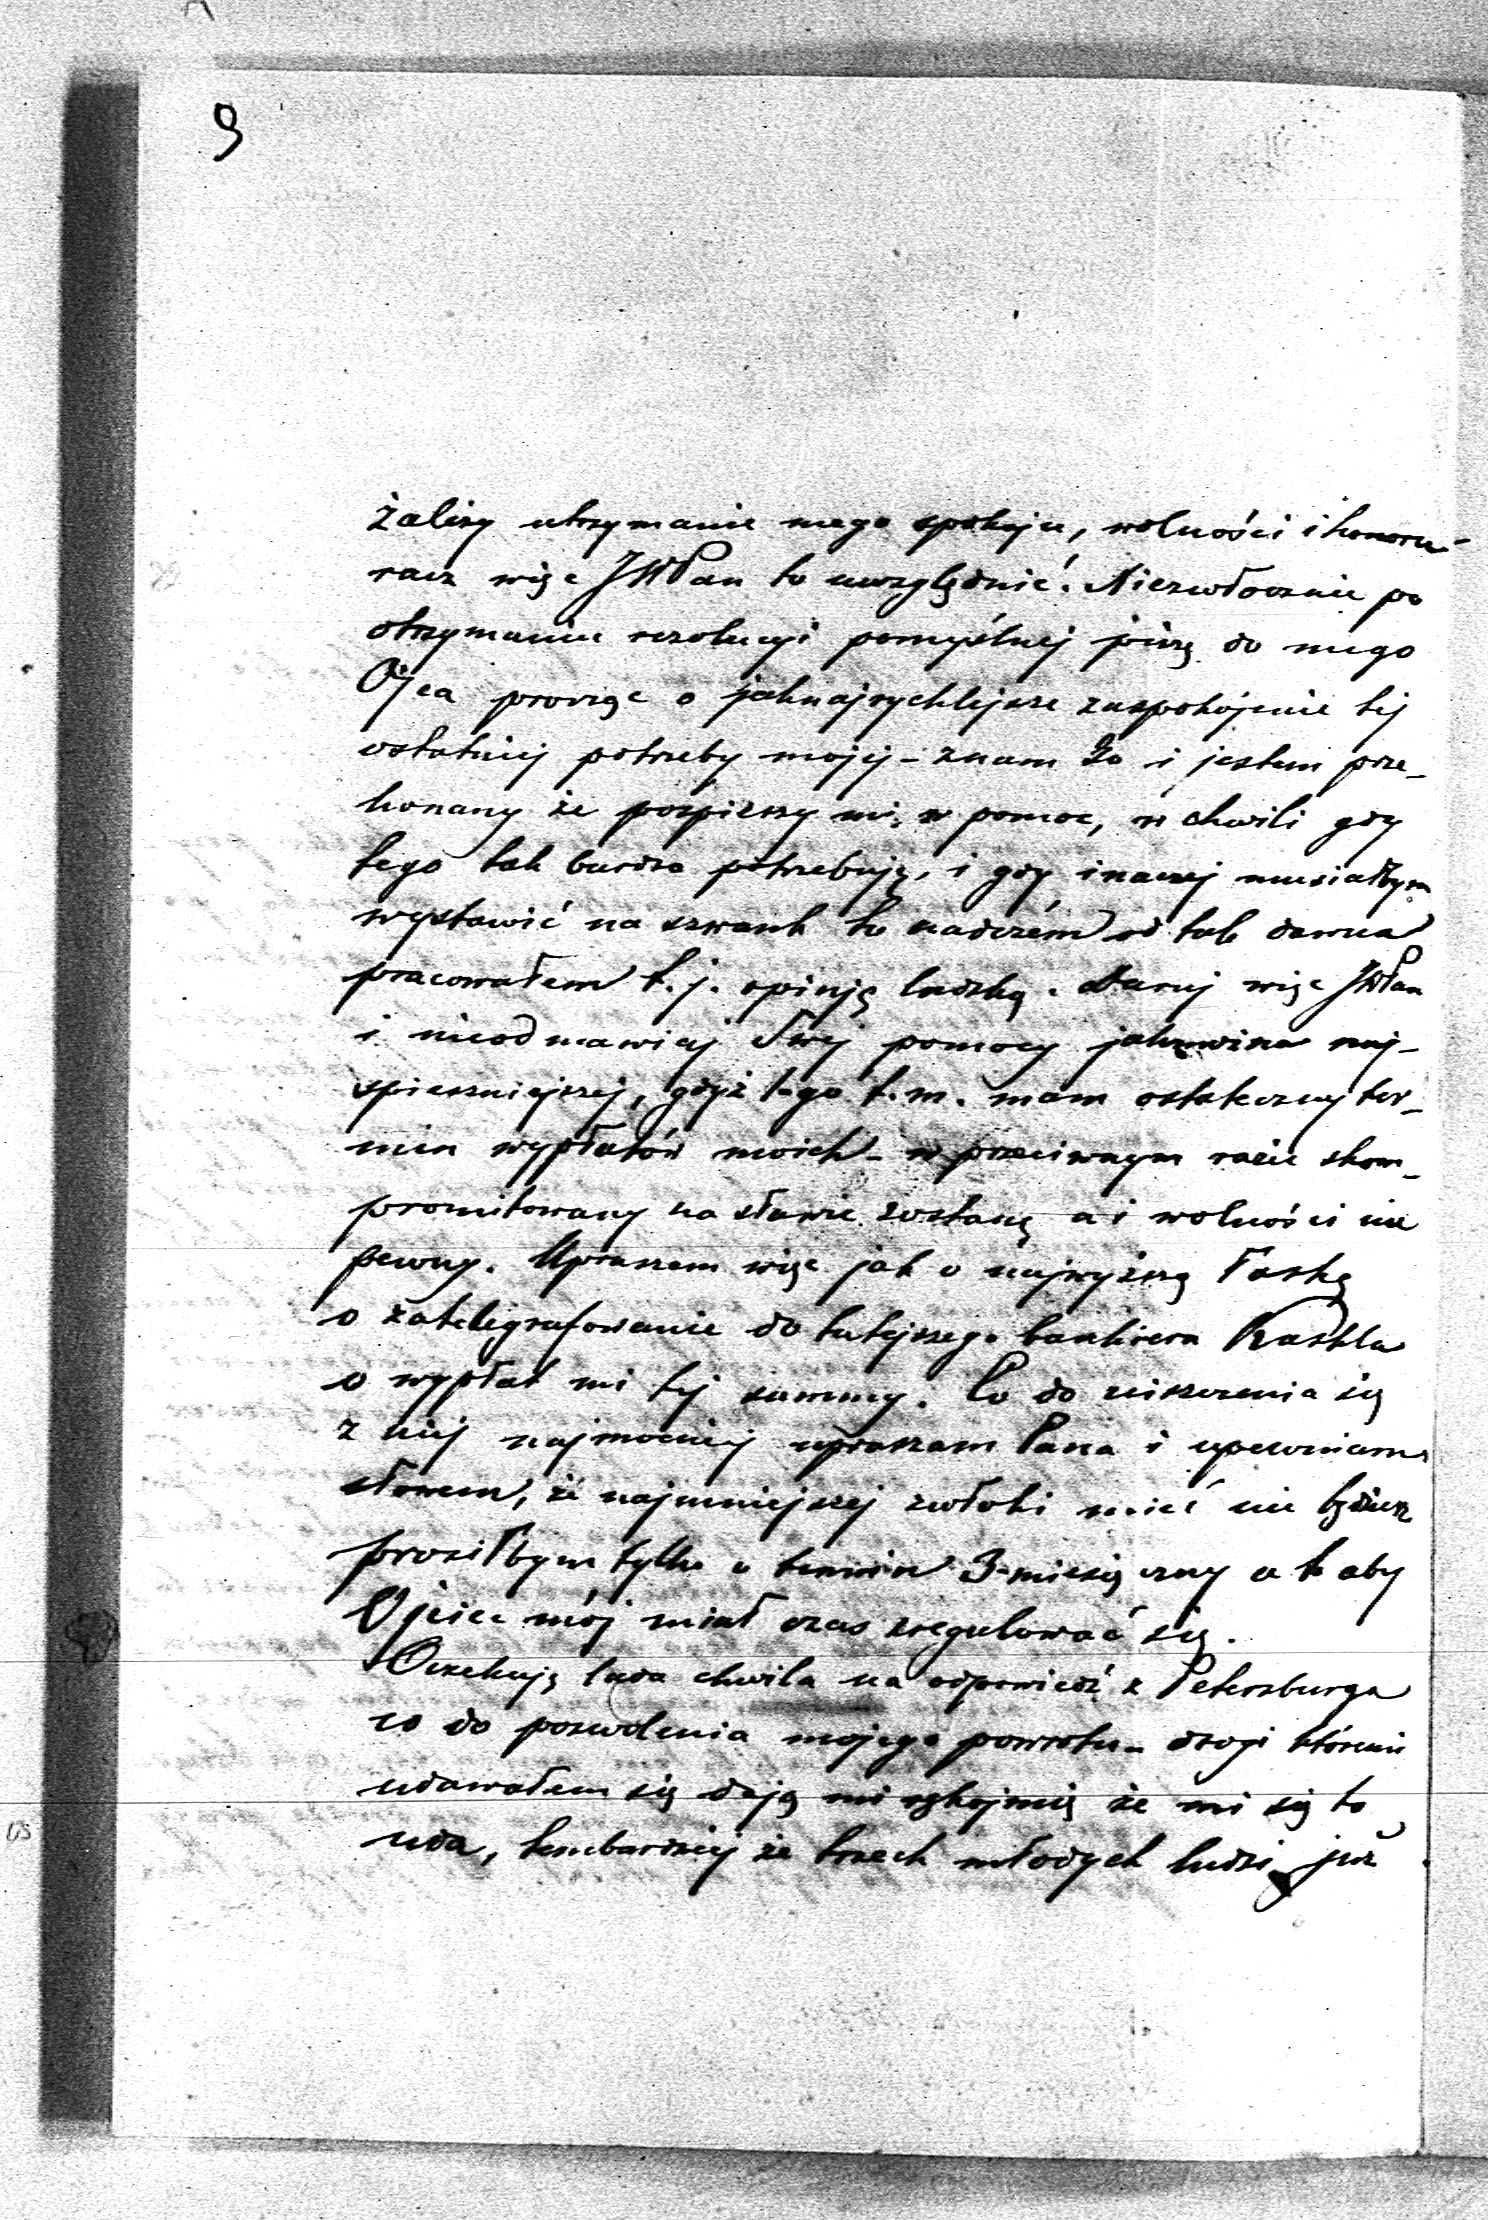 9
żaliży utrzymanie mego spokoju, wolności i honoru -
racz więc JWPan to uwzględnić. Niezwłocznie po
otrzymaniu rezolucyi pomyślnej piszę do mego
Ojca prosząc o jaknajrychlejsze zaspokójenie tej
ostatniej potrzeby mojej - znam Go i jestem prze_
konany że pospieszy mi w pomoc, w chwili gdy
tego tak bardzo potrzebuję, i gdy inaczej musiałbym
wystawić na szwank to nadczém od tak dawna
pracowałem t. j. opinję ludzką. Daruj więc JWPan
i nieodmawiaj Swej pomocy naj-
spieszniejszej, gdyż 1-go t. m. mam ostateczny ter_
min wypłatów moich - w przeciwnym razie skom_
promitowany na sławie zostanę a i wolności nie
pewny. Upraszam więc jak o najwyższą łaskę
o zatelegrafowanie do tutejszego bankiera Kaskla
o wypłat mi tej summy. Co do uiszczenia się
z niej najmocniej upraszam Pana i upewniam
słowem, że najmniejszej zwłoki mieć nie będziesz
prosiłbym tylko o termin 3-miesięczny a to aby
Ojciec mój miał czas zregulować się.
Oczekuję lada chwila na odpowiedź z Petersburga
co do pozwolenia mojego powrotu - drogi któremi
udawałem się dają mi rękojmię że mi się to
uda, tembardziej że trzech młodych ludzi już